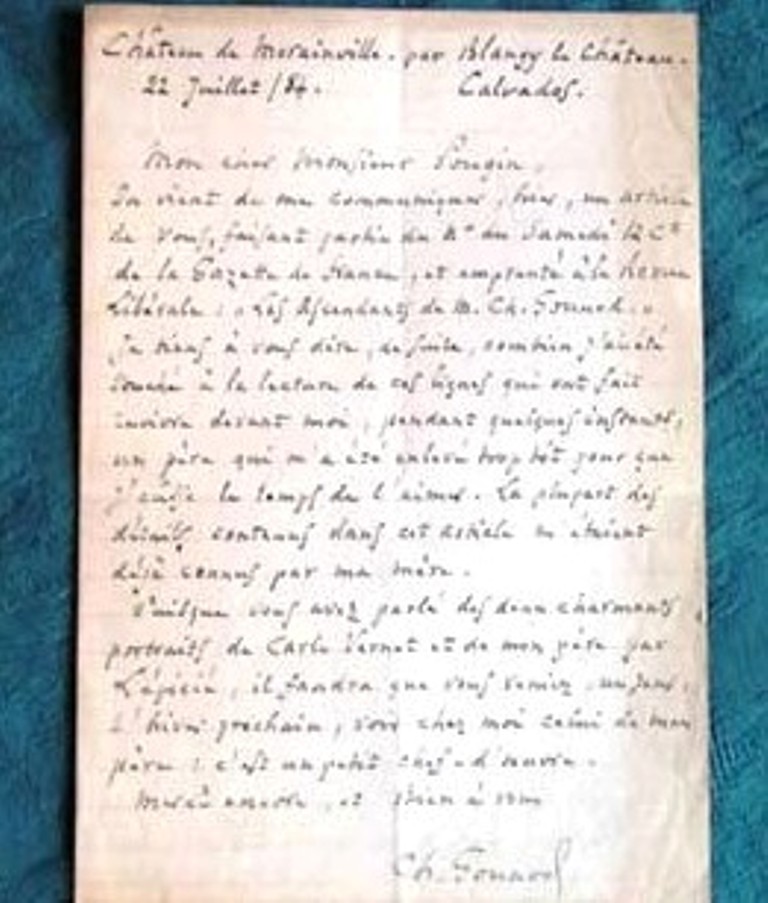 Château de Morainville. par Blangy le Château.
22 Juillet /84.
Calvados.
Mon cher Monsieur Pougin,
On vient de me communiquer, hier, un article
de vous, faisant partie du Nº du Samedi 12 Ct
de la Gazette de France, et emprunté à la Revue
Libérale : "Les Ascendants de M. Ch. Gounod."
Je tiens à vous dire, de suite, combien j'ai été
touché à la lecture de ces lignes qui ont fait
revivre devant moi, pendant quelques instants,
un père qui m'a été enlevé trop tôt pour que
j'aie eu le temps de l'aimer. La plupart des
détails contenus dans cet article m'étaient
déjà connus par ma mère.
Puisque vous avez parlé des deux charmants
portraits de Carle Vernet et de mon père par
Lépicié, il faudra que vous veniez, un jour,
l'hiver prochain, voir chez moi celui de mon
père : c'est un petit chef-d'œuvre.
Merci encore, et bien à vous
Ch. Gounod